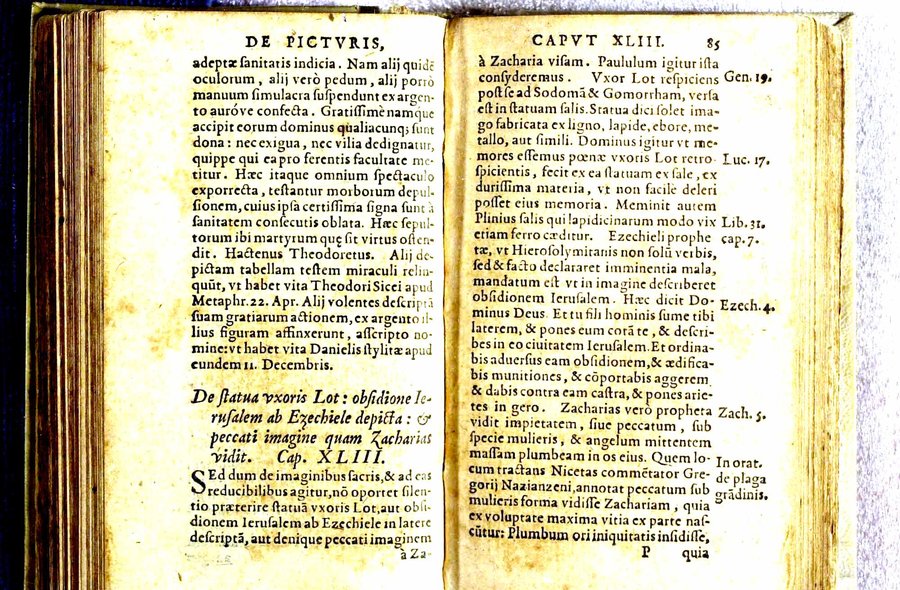 DE PICTVRIS,
adeptæ sanitatis indicia. Nam alij quidē
oculorum, alij verò pedum, alij porrò
manuum simulacra suspendunt ex argen-
to auróve confecta. Gratissimè namque
accipit eorum dominus qualiacunq; sunt
dona: nec exigua, nec vilia dedignatur,
quippe qui ea pro ferentis facultate me-
titur. Hæc itaque omnium spectaculo
exporrecta, testantur morborum depul-
sionem, cuius ipsa certissima signa sunt à
sanitatem consecutis oblata. Hæc sepul-
torum ibi martyrum quę sit virtus osten-
dit. Hactenus Theodoretus. Alij de-
pictam tabellam testem miraculi relin-
quūt, vt habet vita Theodori Sicei apud
Metaphr. 22. Apr. Alij volentes descriptā
suam gratiarum actionem, ex argento il-
lius figuram affinxerunt, asscripto no-
mine: vt habet vita Danielis stylitæ apud
eundem 11. Decembris.
De statua vxoris Lot: obsidione Ie-
rusalem ab Ezechiele depicta: &
peccati imagine quam Zacharias
vidit. Cap. XLIII.
SEd dum de imaginibus sacris, & ad eas
reducibilibus agitur, nō oportet silen-
tio præterire statuā vxoris Lot, aut obsi-
dionem Ierusalem ab Ezechiele in latere
descriptā, aut denique peccati imaginem
à Za-
CAPVT XLIII. 85
à Zacharia visam. Paululum igitur ista
consyderemus. Vxor Lot respiciens
post se ad Sodomā & Gomorrham, versa
est in statuam salis. Statua dici solet ima-
go fabricata ex ligno, lapide, ebore, me-
tallo, aut simili. Dominus igitur vt me-
mores essemus pœnæ vxoris Lot retro
spicientis, fecit ex ea statuam ex sale, ex
durissima materia, vt non facilè deleri
posset eius memoria. Meminit autem
Plinius salis qui lapidicinarum modo vix
etiam ferro cæditur. Ezechieli prophe
tæ, vt Hierosolymitanis non solū verbis,
sed & facto declararet imminentia mala,
mandatum est vt in imagine describeret
obsidionem Ierusalem. Hæc dicit Do-
minus Deus. Et tu fili hominis sume tibi
laterem, & pones eum corā te, & descri-
bes in eo ciuitatem Ierusalem. Et ordina-
bis aduersus eam obsidionem, & ædifica-
bis munitiones, & cōportabis aggerem
& dabis contra eam castra, & pones arie-
tes in gero. Zacharias verò propheta
vidit impietatem, siue peccatum, sub
specie mulieris, & angelum mittentem
massam plumbeam in os eius. Quem lo-
cum tractans Nicetas commētator Gre-
gorij Nazianzeni, annotat peccatum sub
mulieris forma vidisse Zachariam, quia
ex voluptate maxima vitia ex parte nas-
cūtur: Plumbum ori iniquitatis insidisse,
P quia
Gen. 19.
Luc. 17.
Lib. 31.
cap. 7.
Ezech. 4.
Zach. 5.
In orat.
de plaga
grādinis.